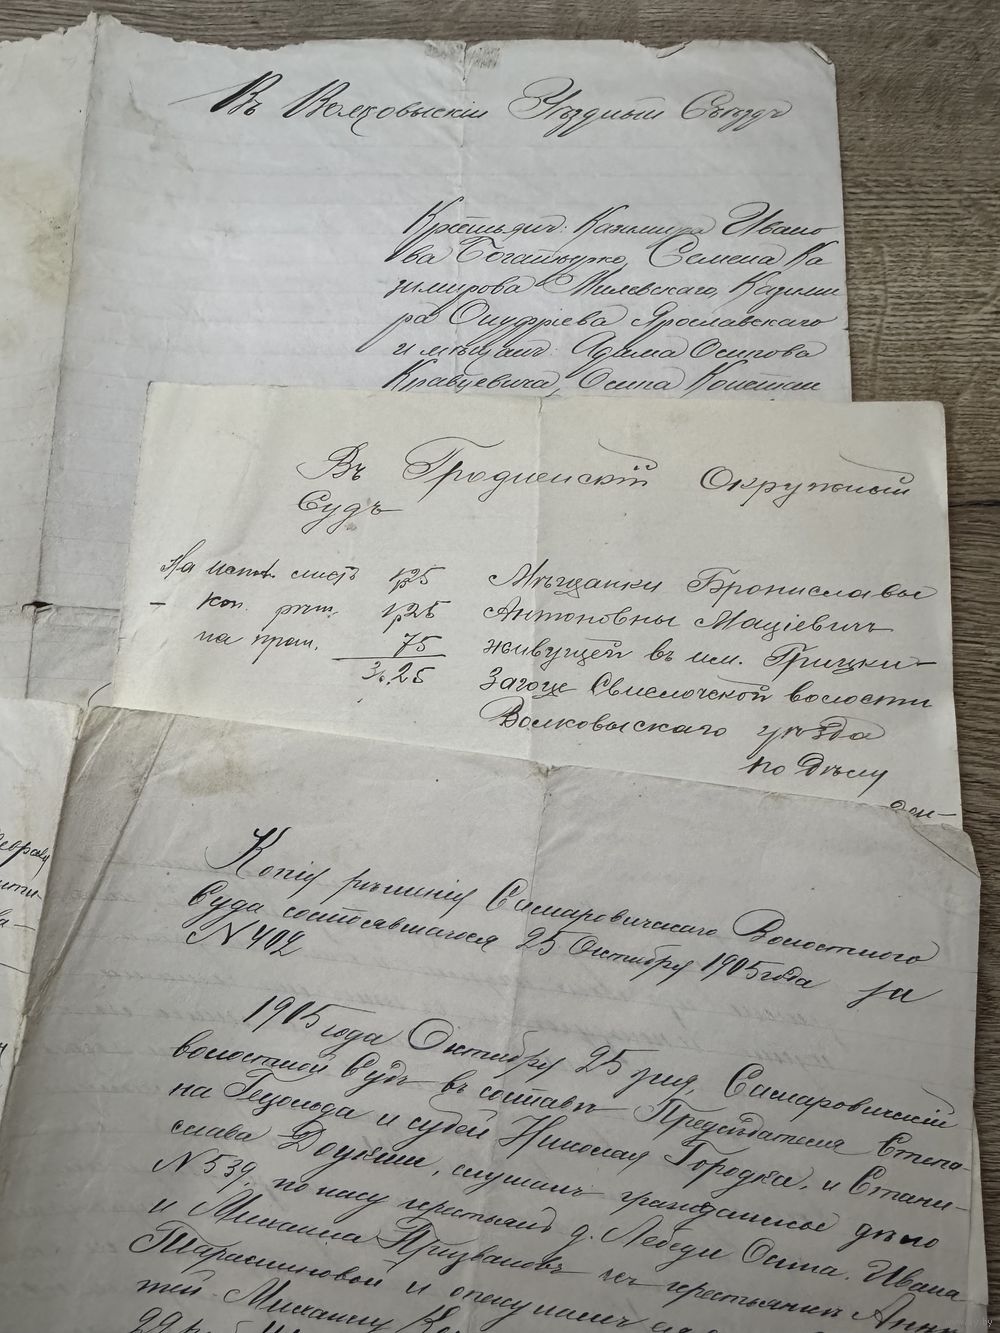 Въ Волковыскій Уѣздный Съѣздъ
Крестьян: Казимира Ивано
ва Богатырко, Семена Ка
зимирова Милевскаго, Казими
ра Онуфріева Ярославскаго
и мѣщан: Адама Осипова
Кравцевича, Осипа Констан
Въ Гродненскій Окружный
Судъ
На испол. листъ 1р25
— коп. рѣш. 1р25
на прош. 75
3р.25
Мѣщанки Брониславы
Антоновны Маціевичъ
живущей въ им. Грицки-
Загоце Свислочской волости
Волковыскаго уѣзда
по дѣлу
Копія рѣшенія Самаровичскаго Волостного
Суда состоявшагося 25 Октября 1905 года за
№ 402
1905 года Октября 25 дня, Самаровичскій
волостной Судъ въ составѣ Предсѣдателя Степа-
на Гецольда и судей Николая Городка, и Стани-
слава слушали гражданское дѣло
№ 539, по иску крестьянъ д. Лебеди Осипа, Ивана
и Михаила къ крестьянкѣ Анн
и опекунамъ
Михаилу